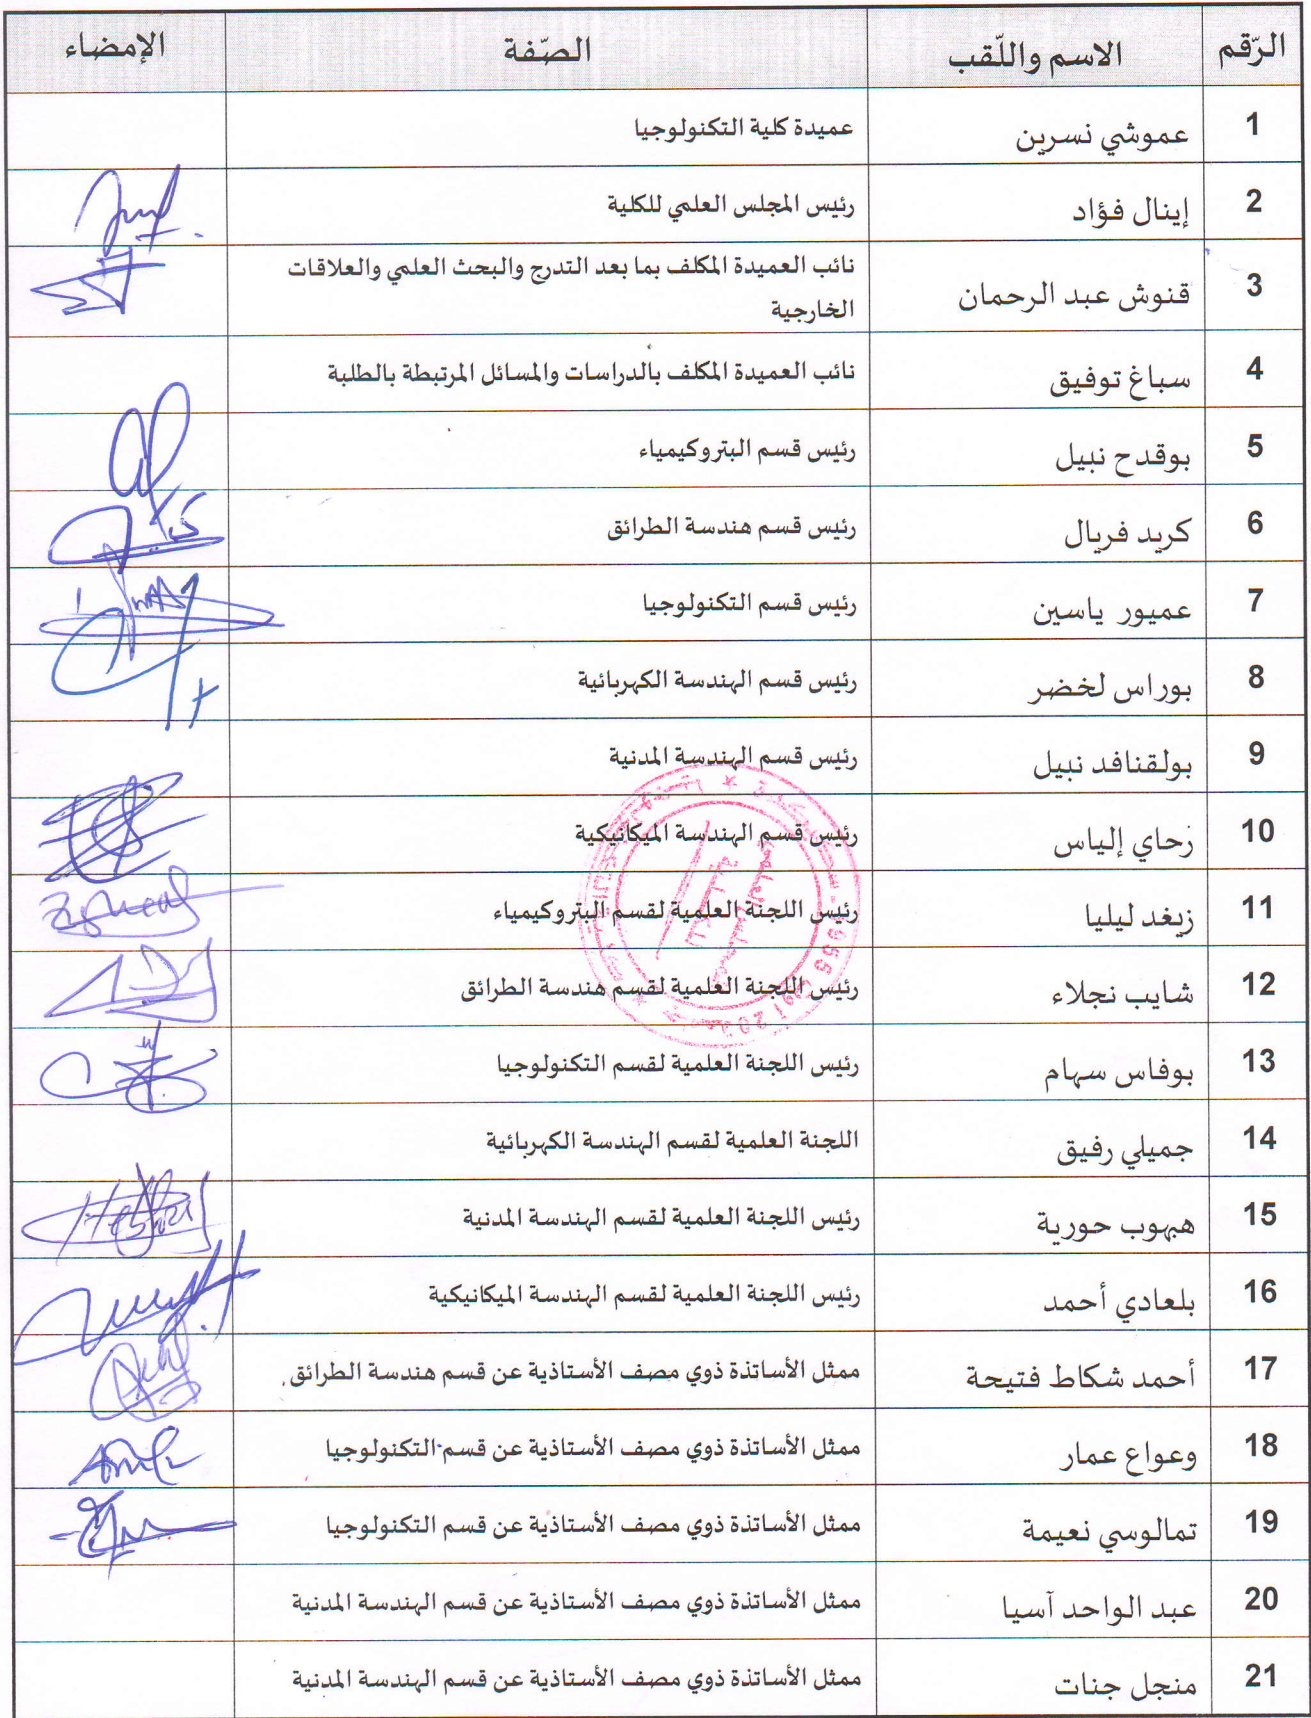 الرّقم الاسم واللّقب الصّفة الإمضاء
1 عموشي نسرين عميدة كلية التكنولوجيا
2 إينال فؤاد رئيس المجلس العلمي للكلية
3 قنوش عبد الرحمان نائب العميدة المكلف بما بعد التدرج والبحث العلمي والعلاقات
الخارجية
4 سباغ توفيق نائب العميدة المكلف بالدراسات والمسائل المرتبطة بالطلبة
5 بوقدح نبيل رئيس قسم البتروكيمياء
6 كريد فريال رئيس قسم هندسة الطرائق
7 عميور ياسين رئيس قسم التكنولوجيا
8 بوراس لخضر رئيس قسم الهندسة الكهربائية
9 بولقنافد نبيل رئيس قسم الهندسة المدنية
10 زحاي إلياس رئيس قسم الهندسة الميكانيكية
11 زيغد ليليا رئيس اللجنة العلمية لقسم البتروكيمياء
12 شايب نجلاء رئيس اللجنة العلمية لقسم هندسة الطرائق
13 بوفاس سهام رئيس اللجنة العلمية لقسم التكنولوجيا
14 جميلي رفيق اللجنة العلمية لقسم الهندسة الكهربائية
15 هبهوب حورية رئيس اللجنة العلمية لقسم الهندسة المدنية
16 بلعادي أحمد رئيس اللجنة العلمية لقسم الهندسة الميكانيكية
17 أحمد شكاط فتيحة ممثل الأساتذة ذوي مصف الأستاذية عن قسم هندسة الطرائق.
18 وعواع عمار ممثل الأساتذة ذوي مصف الأستاذية عن قسم التكنولوجيا
19 تمالوسي نعيمة ممثل الأساتذة ذوي مصف الأستاذية عن قسم التكنولوجيا
20 عبد الواحد آسيا ممثل الأساتذة ذوي مصف الأستاذية عن قسم الهندسة المدنية
21 منجل جنات ممثل الأساتذة ذوي مصف الأستاذية عن قسم الهندسة المدنية